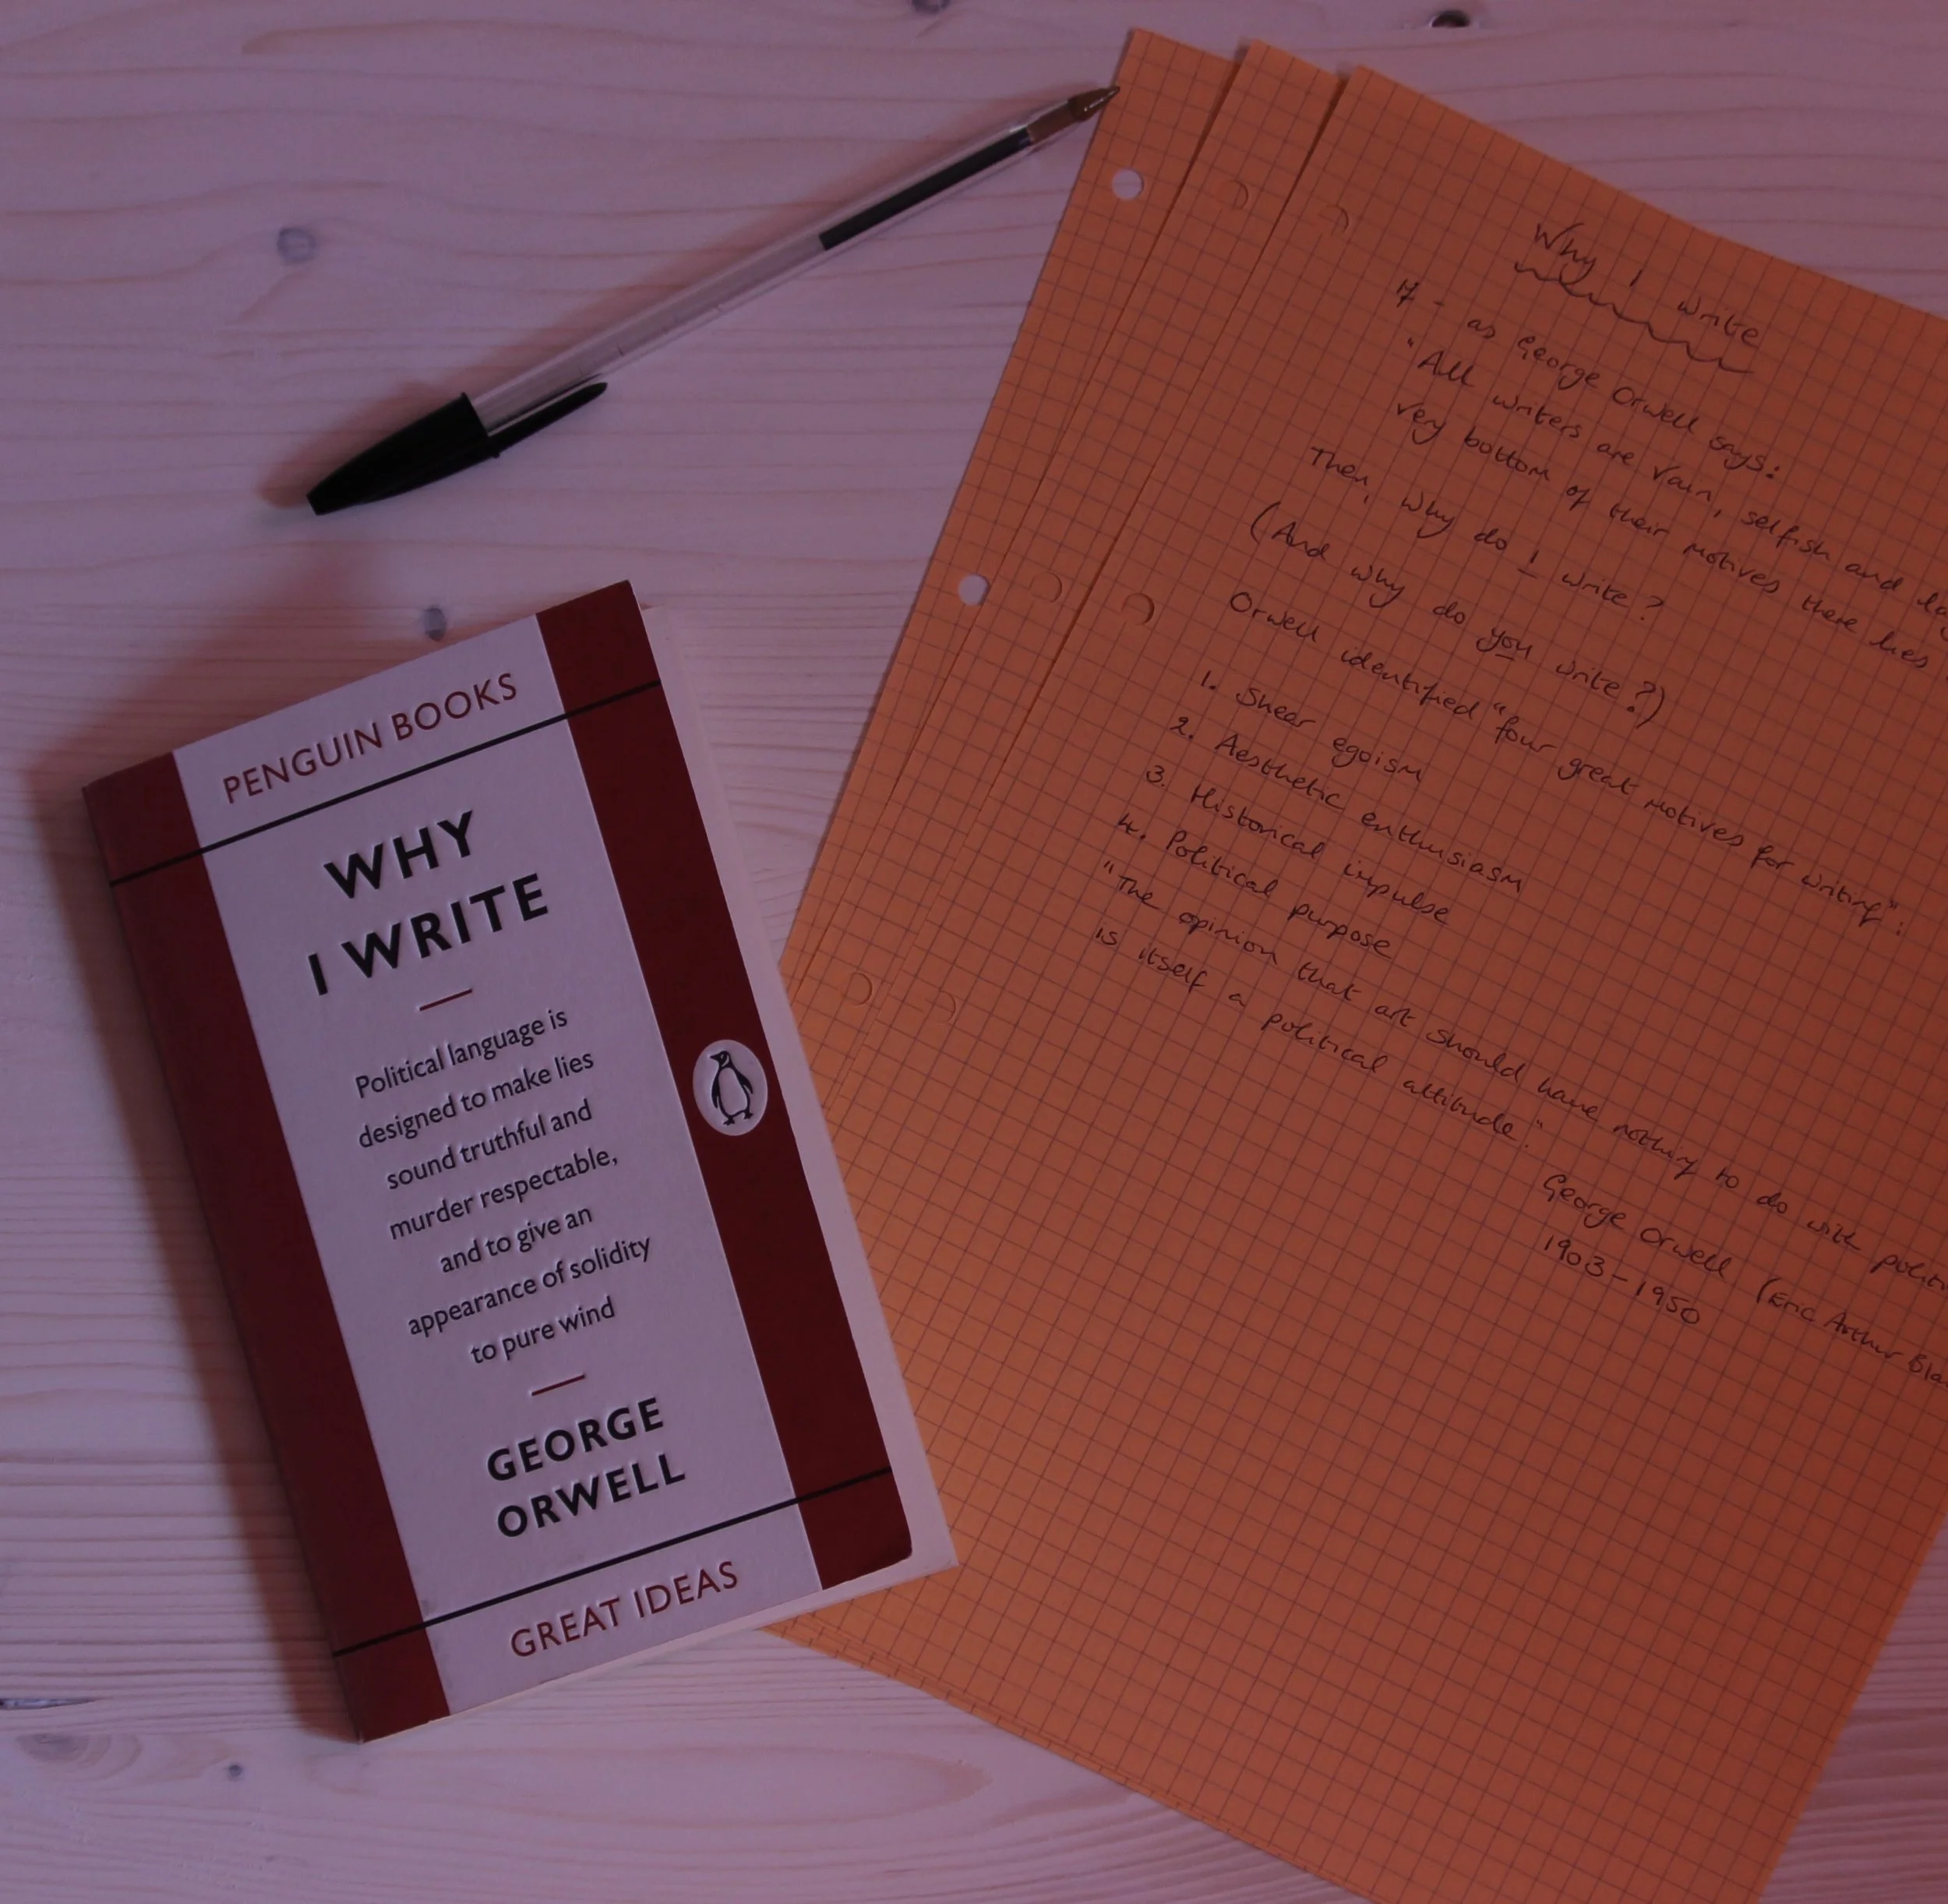 PENGUIN BOOKS
WHY
I WRITE
Political language is
designed to make lies
sound truthful and
murder respectable,
and to give an
appearance of solidity
to pure wind
GEORGE
ORWELL
GREAT IDEAS
Why I write
If - as George Orwell says:
"All writers are vain, selfish and
very bottom of their motives there lies
Then, why do I write?
(And why do you write?)
Orwell identified "four great motives for writing":
1. Shear egoism
2. Aesthetic enthusiasm
3. Historical impulse
4. Political purpose
"The opinion that art should have nothing to do with
is itself a political attitude."
George Orwell (Eric Arthur
1903-1950